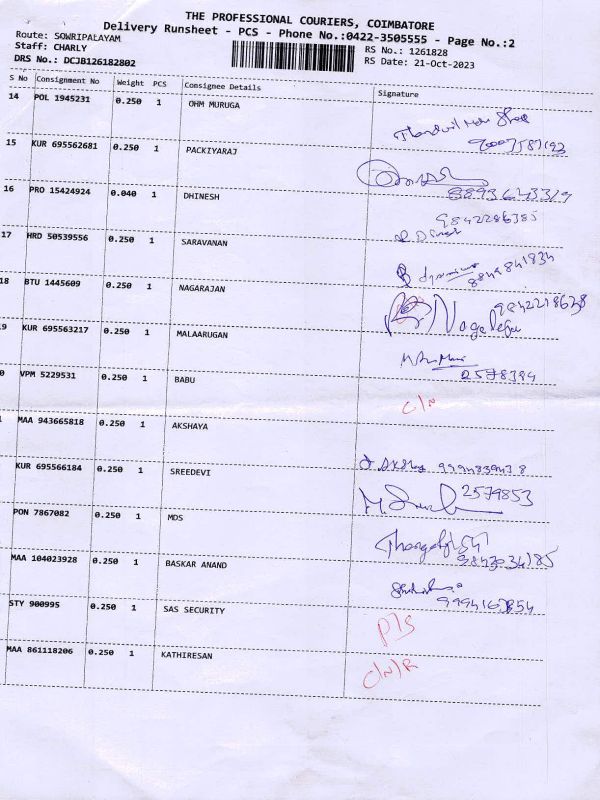 THE PROFESSIONAL COURIERS, COIMBATORE
Delivery Runsheet - PCS - Phone No.:0422-3505555 - Page No.:2
Route: SOWRIPALAYAM
Staff: CHARLY
DRS No.: DCJB126182802
RS No.: 1261828
RS Date: 21-Oct-2023
S No Consignment No Weight PCS Consignee Details Signature
14 POL 1945231 0.250 1 OHM MURUGA
15 KUR 695562681 0.250 1 PACKIYARAJ
16 PRO 15424924 0.040 1 DHINESH
9842286385
17 HRD 50539556 0.250 1 SARAVANAN
8849841834
18 BTU 1445609 0.250 1 NAGARAJAN
9842218628
9 KUR 695563217 0.250 1 MALAARUGAN
2578394
0 VPM 5229531 0.250 1 BABU C/N
MAA 943665818 0.250 1 AKSHAYA
KUR 695566184 0.250 1 SREEDEVI 2579853
PON 7867082 0.250 1 MDS
MAA 104023928 0.250 1 BASKAR ANAND
STY 900995 0.250 1 SAS SECURITY P/S
MAA 861118206 0.250 1 KATHIRESAN C/N/R